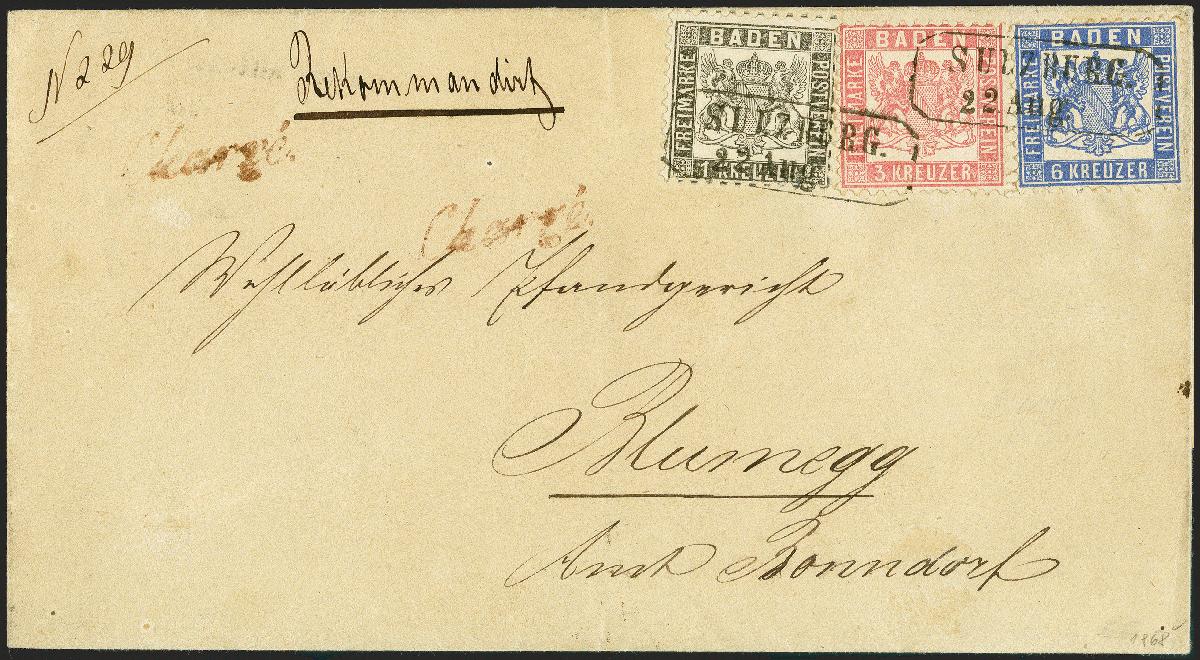 N 229
Rekommandirt
Chargé.
Chargé.
BADEN
FREIMARKE
POSTVEREIN
1 KREUZER
BADEN
FREIMARKE
POSTVEREIN
3 KREUZER
BADEN
FREIMARKE
POSTVEREIN
6 KREUZER
SULZBERG.
22 Aug.
SULZBERG.
22 Aug.
Wohllöbliches Pfandgericht
Blumegg
Amt Bonndorf
1868